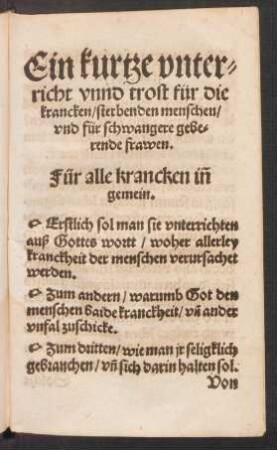 Ein kurtze vnter-
richt vnnd trost für die
krancken/sterbenden menschen/
vnd für schwangere gebe-
rende frawen.
Für alle krancken iñ
gemein.
Erstlich sol man sie vnterrichten
auß Gottes wortt / woher allerley
kranckheit der menschen verursachet
werden.
Zum andern / warumb Got den
menschen baide kranckheit / vñ ander
vnfal zuschicke.
Zum dritten / wie man jr seligklich
gebrauchen / vñ sich darin halten sol.
Von